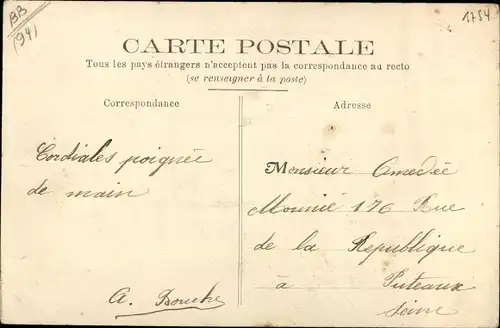 BB
(94)
1754
CARTE POSTALE
Tous les pays étrangers n'acceptent pas la correspondance au recto
(se renseigner à la poste)
Correspondance
Cordiales poignée
de main
A. Bouche
Adresse
Monsieur Amedée
Mounié 176 Rue
de la Republique
à Puteaux
Seine